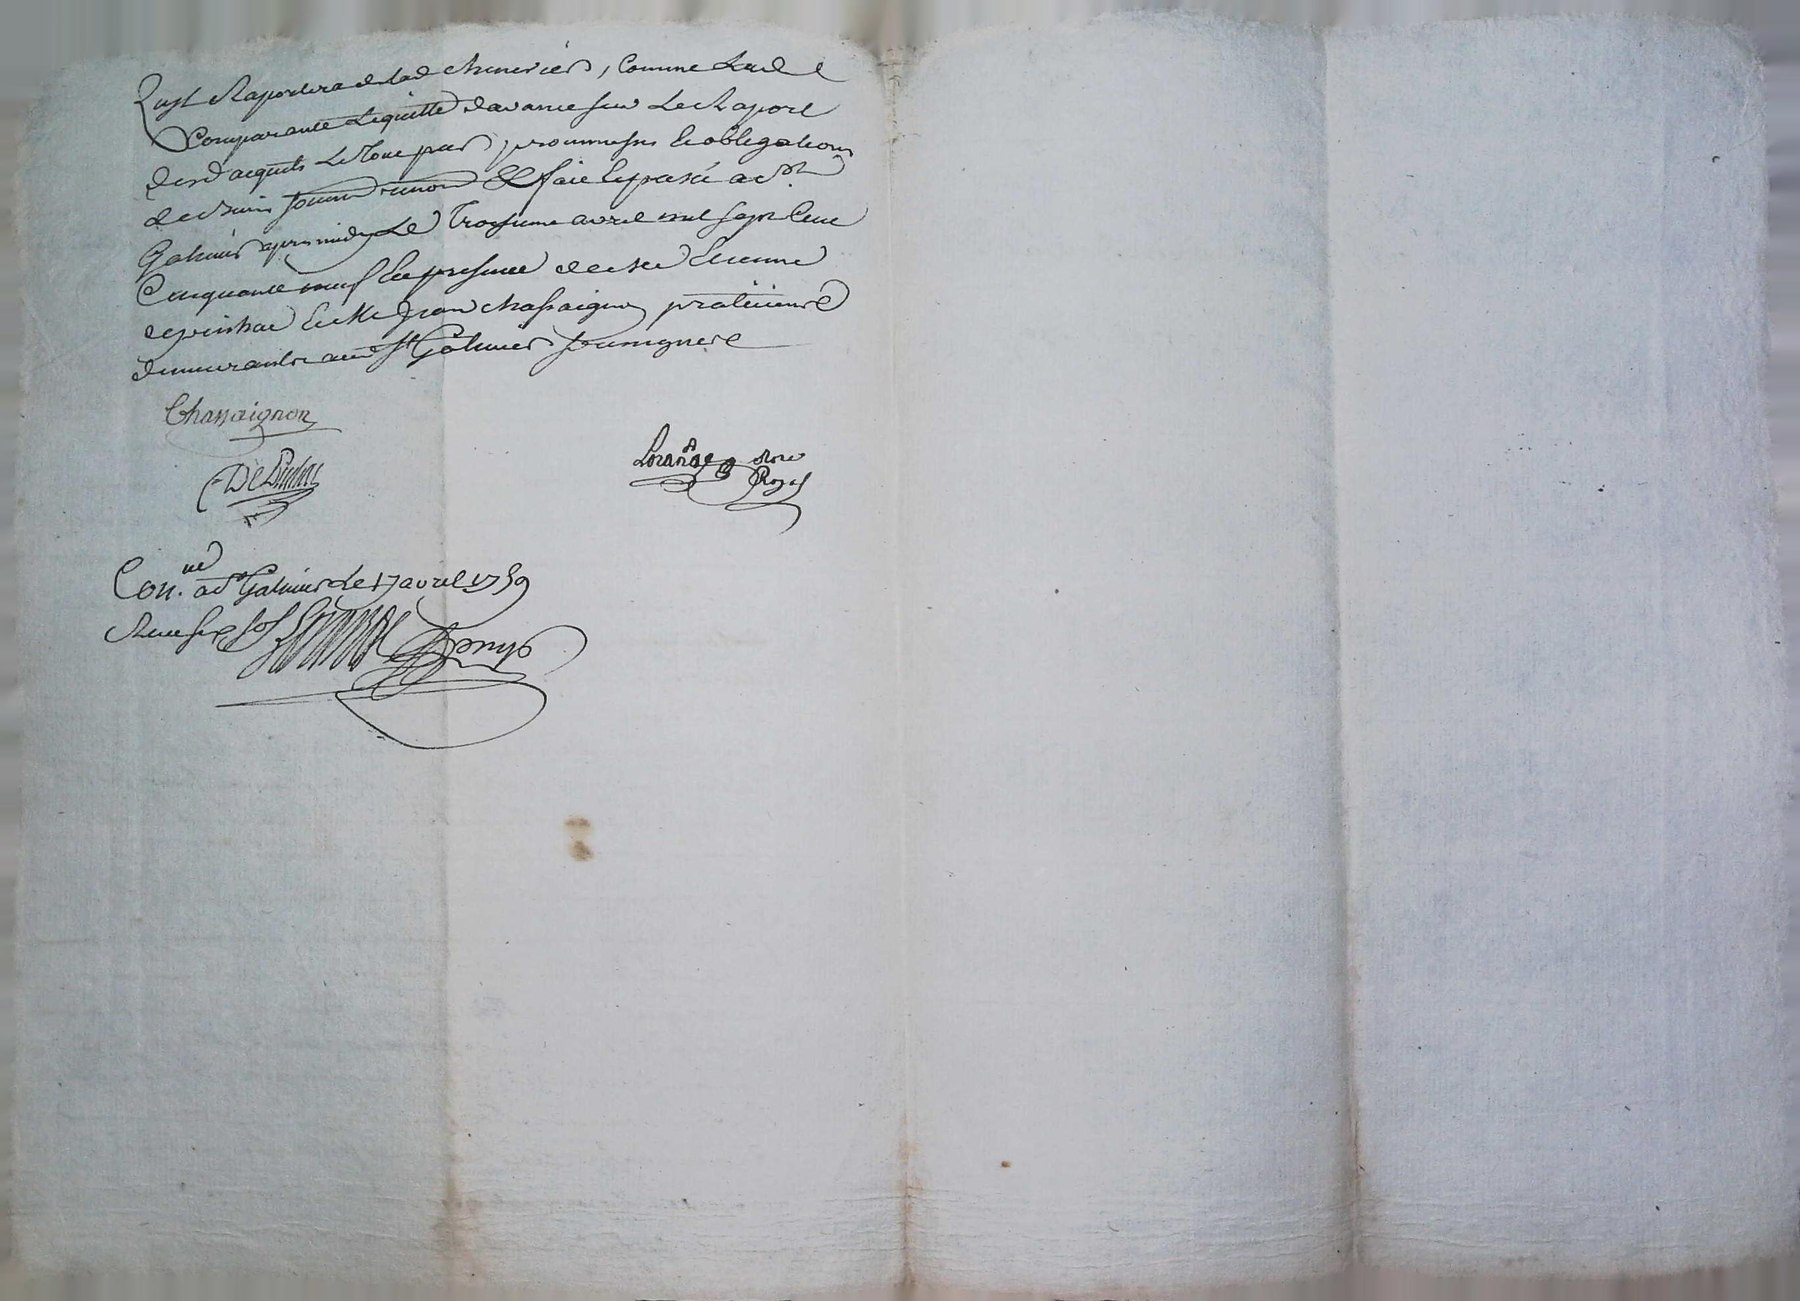 quil Raportera de lad chmerier, comme lad
Comparante lequitte davance sur le Raport
desd acquits le tout par promesses et obligations
de biens soumis renon et fait et passé a St
Galmier apres midy le troisieme avril mil sept cent
Cinquante neuf en presence de sr Etienne
depinhac et Me Jean chassaignon praticiens
demeurants aud St Galmier soussignes
Chassaignon
De
not
Royal
Con. a St Galmier le 17 avril 1759
Reçu six sols